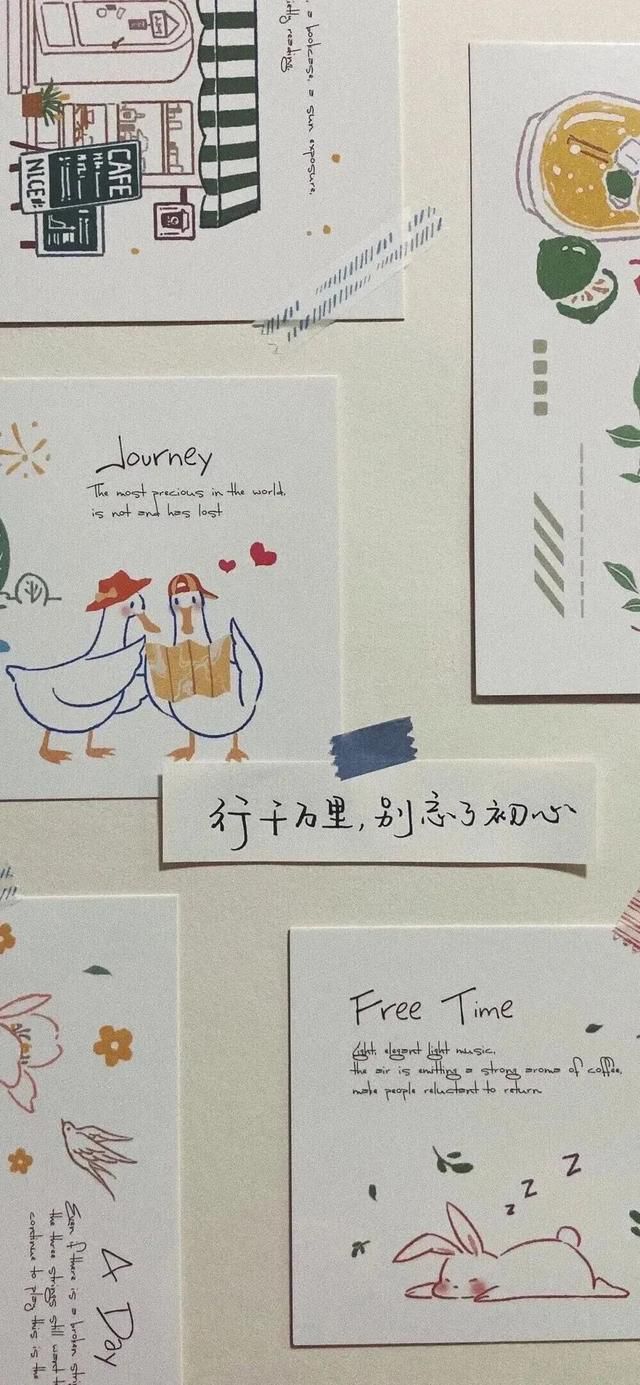 a bookcase, a sun exposure,
reading.
CAFE
NICE
Journey
The most precious in the world,
is not and has lost
行千万里,别忘了初心
Free Time
Light, elegant light music,
the air is emitting a strong aroma of coffee,
make people reluctant to return
z
z
z
A Day
Even if there is a broken
the three strings still want
continue to play this is the